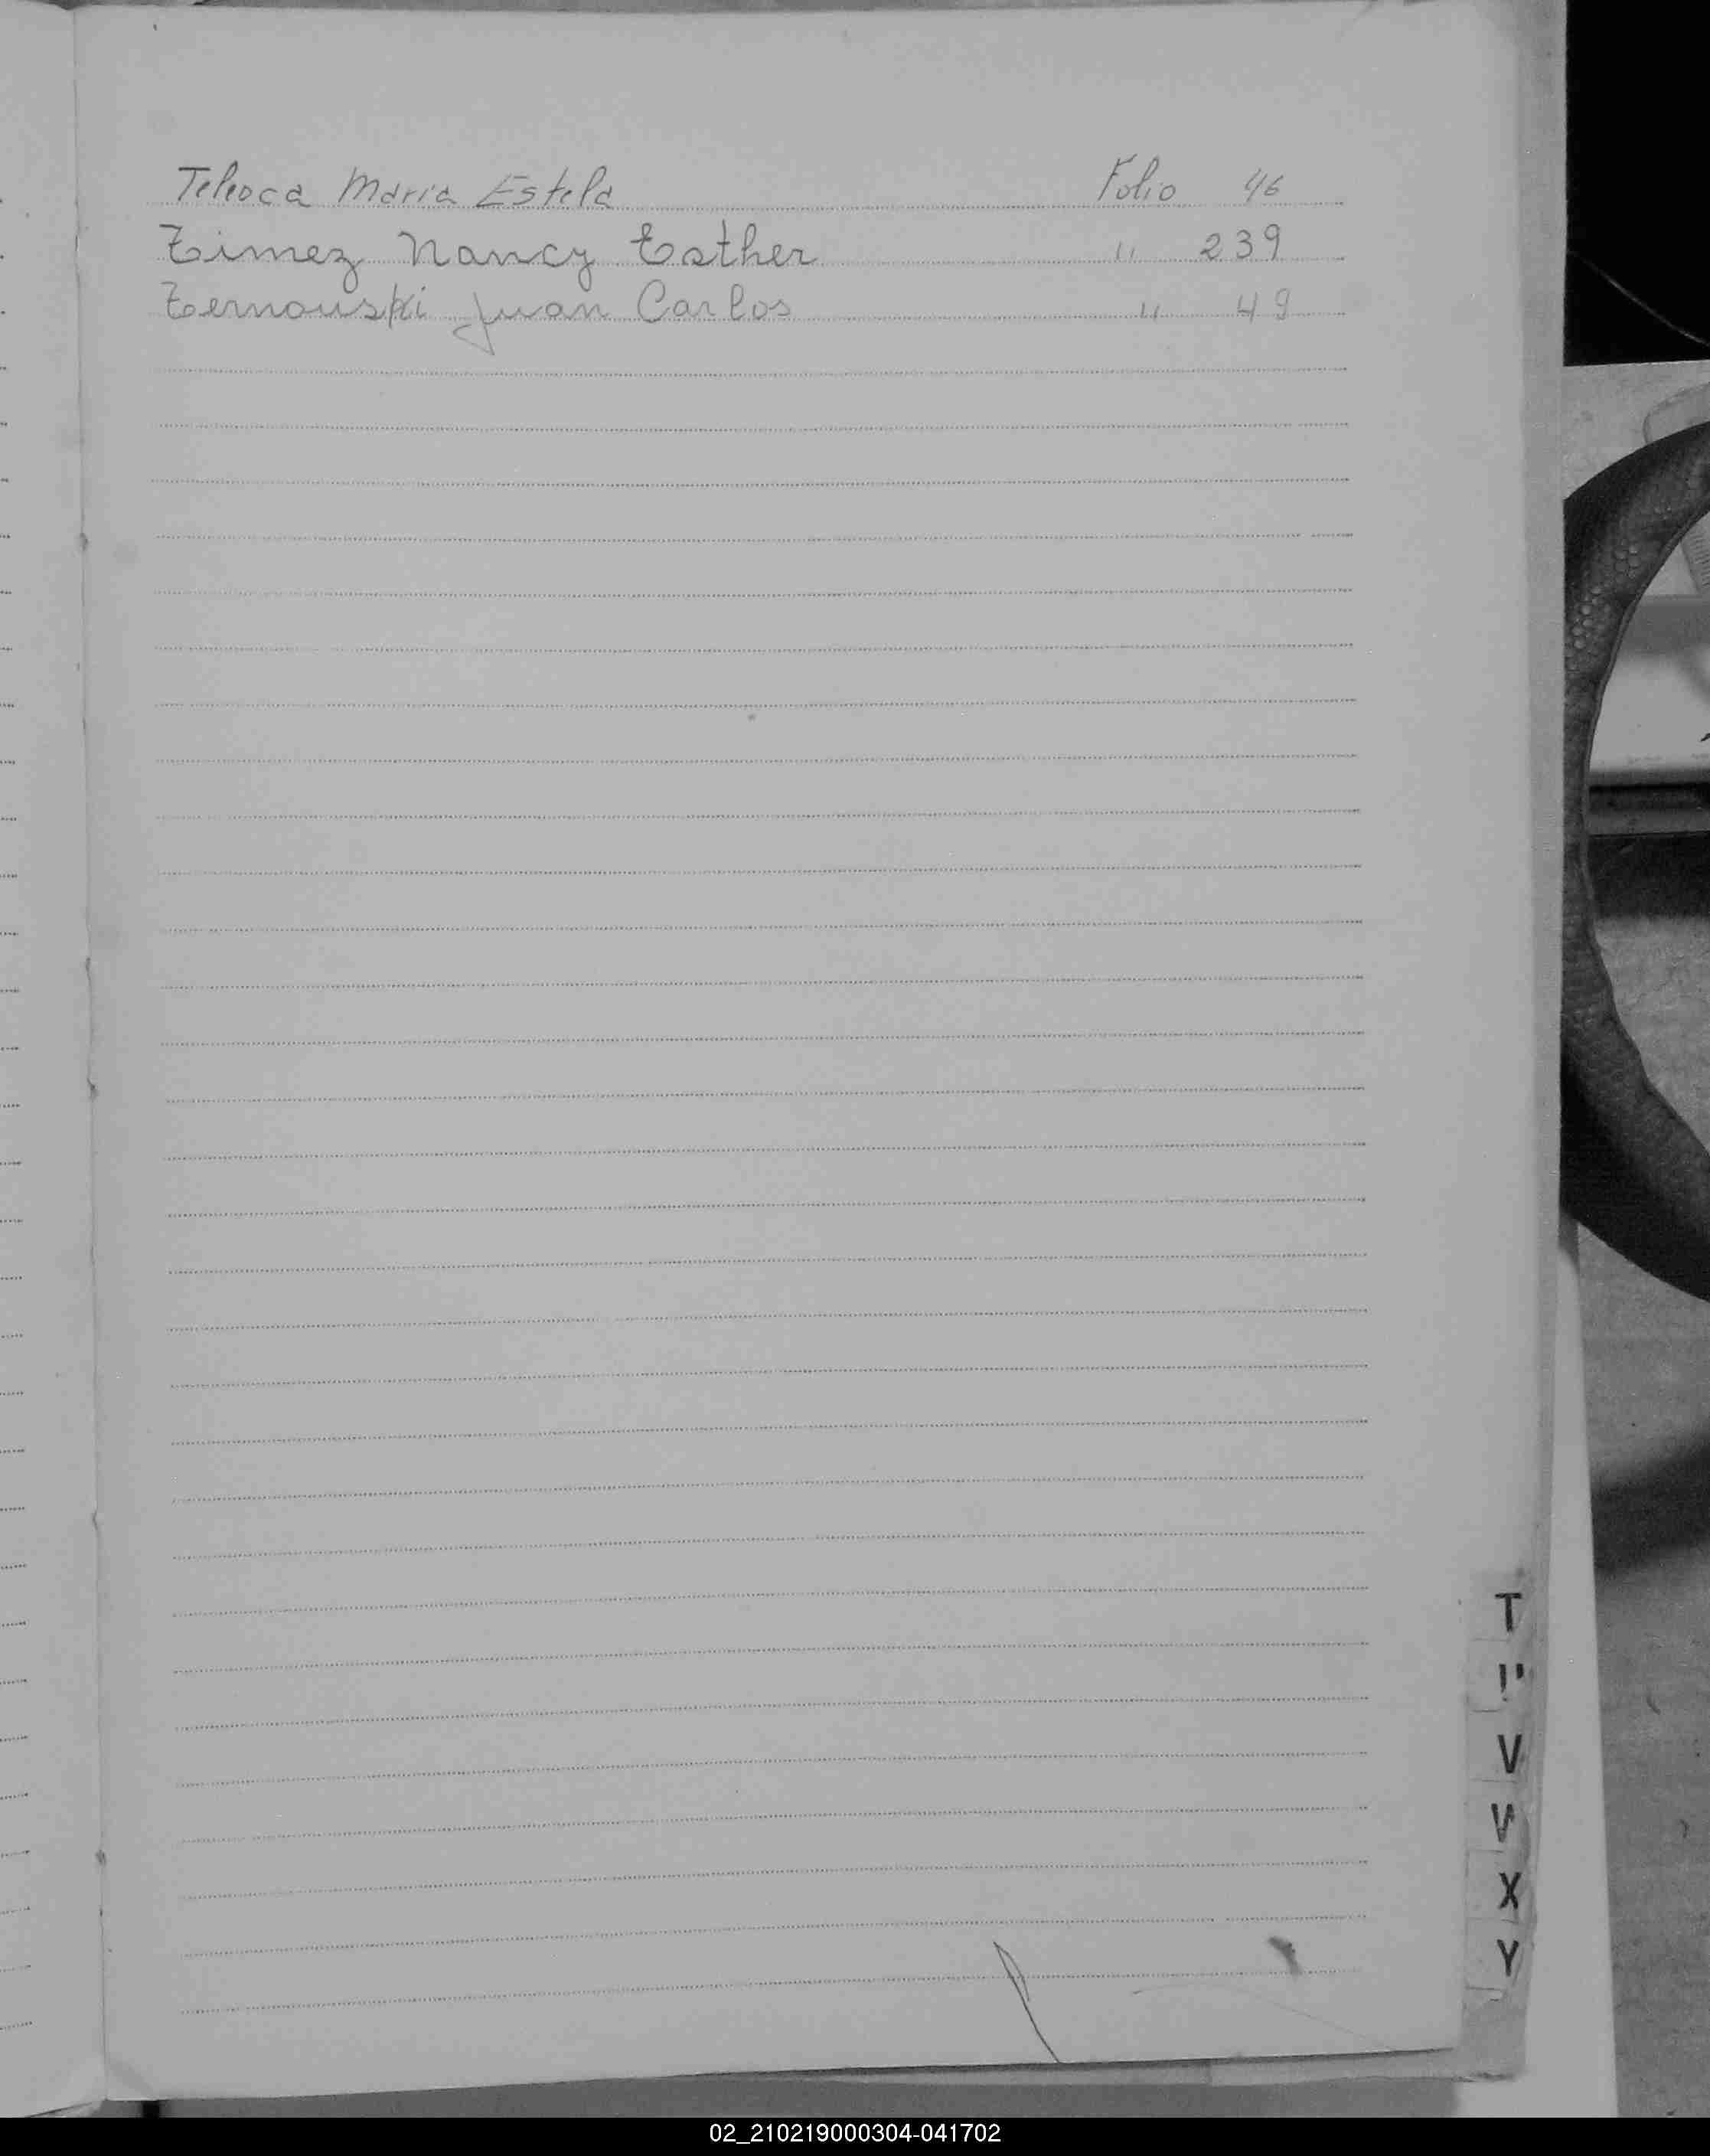 María Estela Folio 46
Timez Nancy Esther " 239
Ternouski Juan Carlos " 49
T
V
W
X
Y
02_210219000304-041702